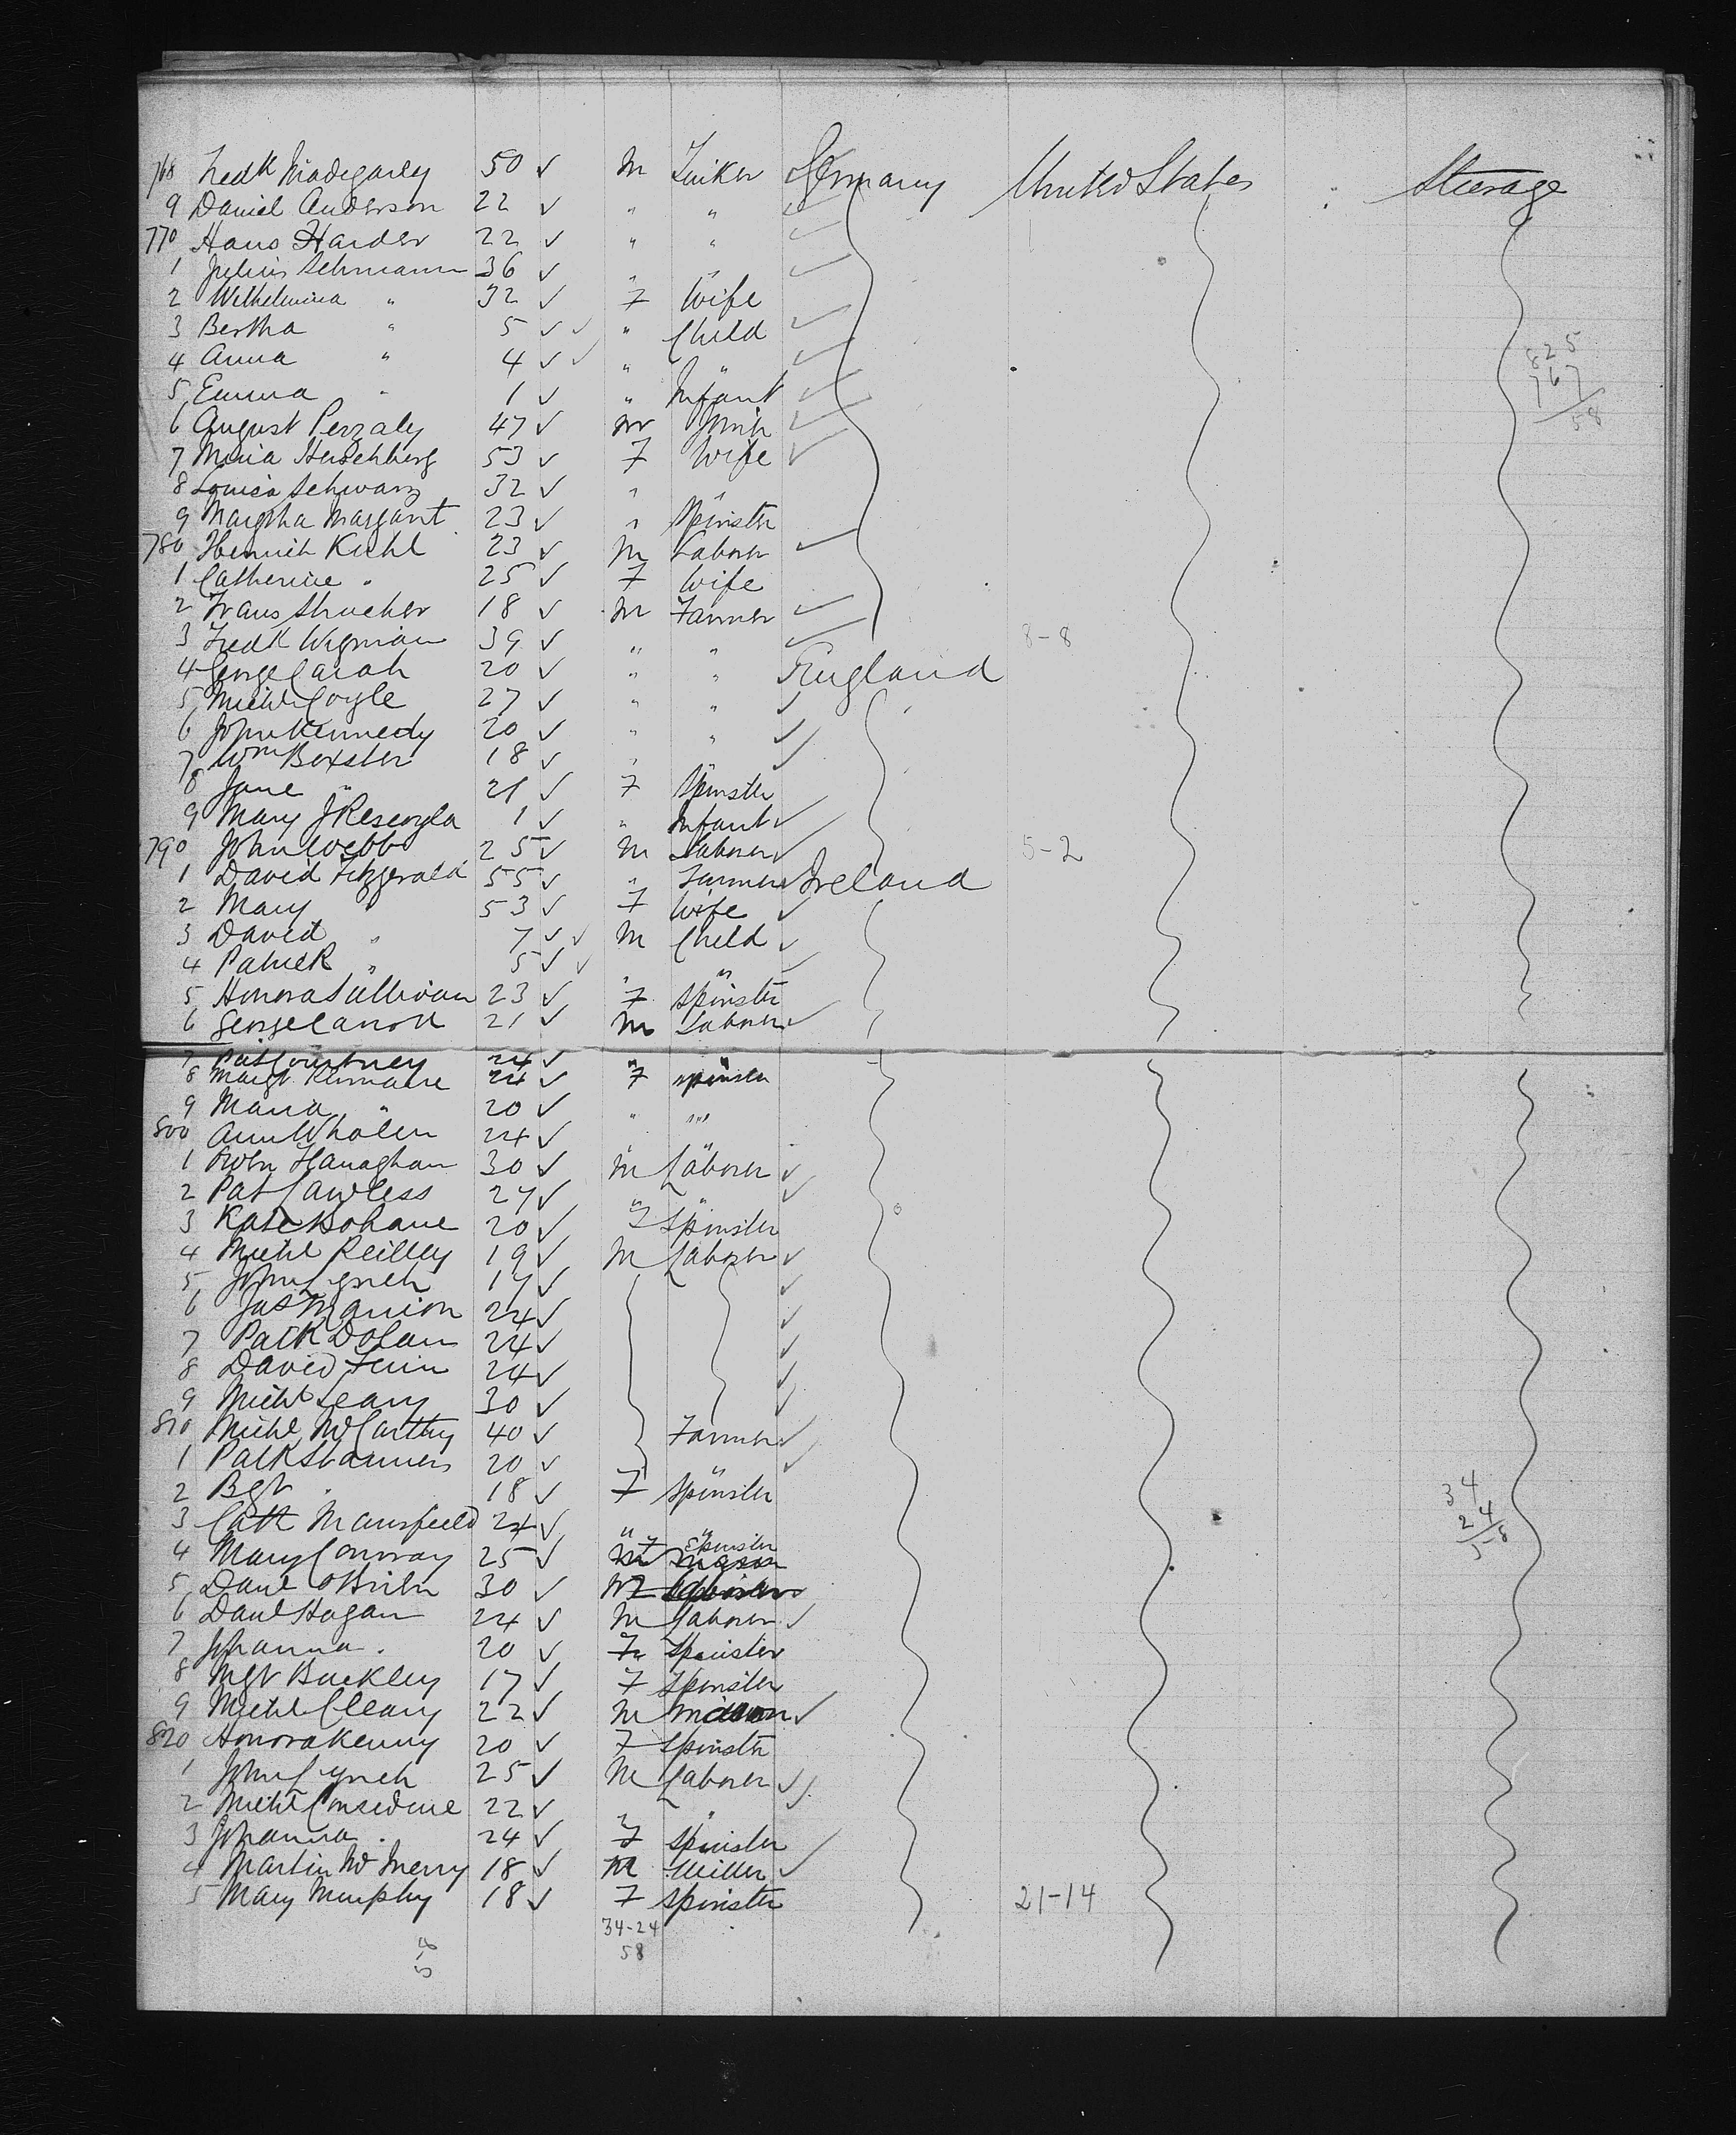 768 Fredk Madegarly 50 ✓ M Tinker Germany United States Steerage
9 Daniel Anderson 22 ✓ " " ✓
770 Hans Harder 22 ✓ " " ✓
1 Julius Sehmann 36 ✓ " " ✓
2 Wilhelmina " 32 ✓ F Wife
3 Bertha " 5 ✓ ✓ " Child ✓
4 Anna " 4 ✓ ✓ " " ✓
825
767
58
5 Emma " 1 ✓ " Infant ✓
6 August Perzaly 47 ✓ M ✓
7 Maria Herschberg 53 ✓ F Wife ✓
8 Louisa Schwarz 32 ✓ " "
9 Margtha Margant 23 ✓ " Spinster
780 Heinrich Kuhl 23 ✓ M Laborer ✓
1 Catherine " 25 ✓ F Wife
2 Frans Strucker 18 ✓ M Farmer ✓
3 Fredk Wigman 39 ✓ " " ✓ 8-8
4 George Carah 20 ✓ " " England
5 Michl Coyle 27 ✓ " " ✓
6 John Kennedy 20 ✓ " " ✓
7 Wm Boxster 18 ✓ " " ✓
8 Jane " 21 ✓ F Spinster
9 Mary J 1 ✓ " Infant ✓
790 John Webb 25 ✓ M Laborer ✓ 5-2
1 David Fitzgerald 55 ✓ " Farmer ✓ Ireland
2 Mary " 53 ✓ F Wife ✓
3 David " 7 ✓ ✓ M Child ✓
4 Patrick " 5 ✓ ✓ " " ✓
5 Honora Sullivan 23 ✓ F Spinster
6 George Carroll 21 ✓ M Laborer ✓
7 Pat Courtney 24 ✓ " "
8 Margt Kinnane 24 ✓ F Spinster
9 Maria " 20 ✓ " "
800 Ann Whalen 24 ✓ " "
1 Owen Flanaghan 30 ✓ M Laborer ✓
2 Pat Lawless 27 ✓ " " ✓
3 Kate Bohane 20 ✓ F Spinster
4 Michl Reilley 19 ✓ M Laborer ✓
5 John Lynch 17 ✓ ✓
6 Jas Manion 24 ✓ ✓
7 Patk Dolan 24 ✓ ✓
8 David Finn 24 ✓ ✓
9 Michl Leary 30 ✓ ✓
810 Michl McCarthy 40 ✓ Farmer ✓
1 Patk Stanners 20 ✓ " ✓
2 Bgt " 18 ✓ F Spinster
3 Cath Mansfield 24 ✓ " "
34
24
58
4 Mary Conway 25 ✓ F Spinster
5 Danl O'Brien 30 ✓ M Laborer ✓
6 Danl Hogan 24 ✓ M Laborer ✓
7 Johanna " 20 ✓ F Spinster
8 Mgt Buckley 17 ✓ F Spinster
9 Michl Cleary 22 ✓ M ✓
820 Honora Kenny 20 ✓ F Spinster
1 John Lynch 25 ✓ M Laborer ✓
2 Michl Considine 22 ✓ " " ✓
3 Johanna " 24 ✓ F Spinster
4 Martin McInerny 18 ✓ M Miller ✓
5 Mary Murphy 18 ✓ F Spinster 21-14
34-24
58
58